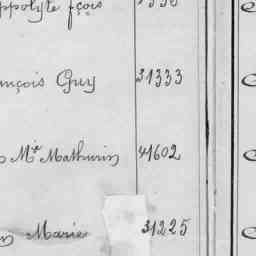 ppolyte fçois
nçois Guy 31333
Mie Mathurin 41602
Marie 31225